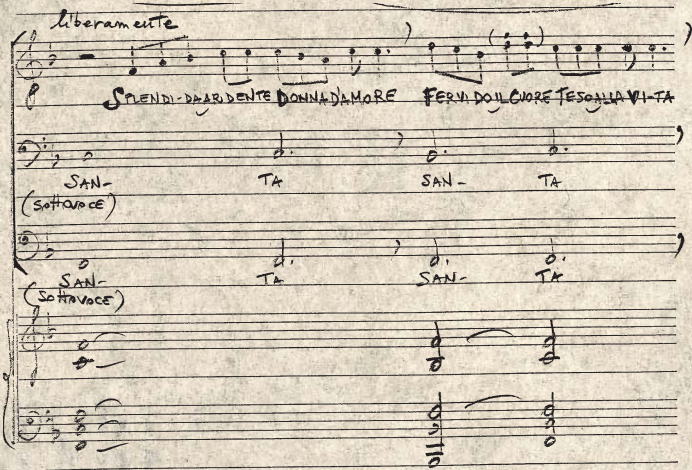 liberamente
SPLENDI-DA ARDENTE DONNA D'AMORE FERVIDO IL CUORE TESO ALLA VI-TA
SAN- TA SAN- TA
(SOTTOVOCE)
SAN- TA SAN- TA
(SOTTOVOCE)